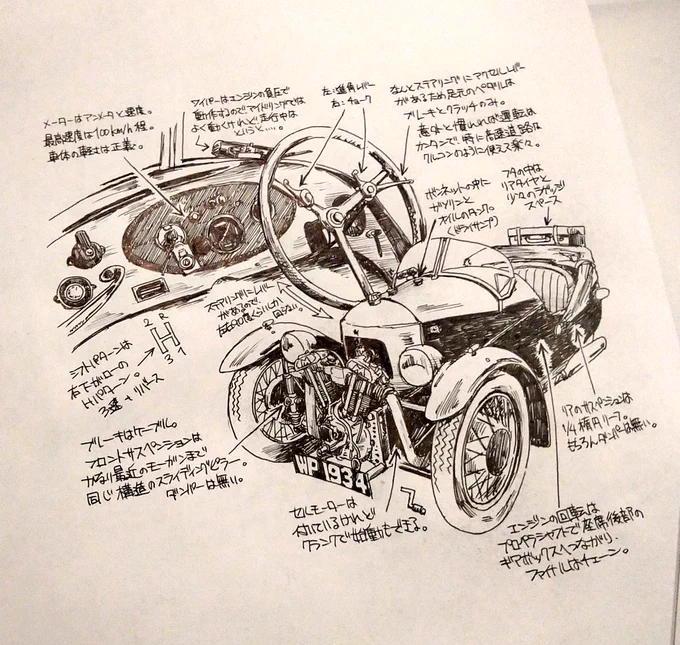 メーターはアンメータと速度。
最高速度は100km/h程。
車体の軽さは正義。
ワイパーはエンジンの負圧で
動作するのでアイドリングでは
よく動くけれど走行中は
左:進角レバー
右:チョーク
なんとステアリングにアクセルレバー
があるため足元のペダルは
ブレーキとクラッチのみ。
意外と慣れれば運転は
カンタンで、時に高速道路は
クルコンのように使えて楽々。
ボンネットの中に
ガソリンと
オイルのタンク。
(ドライサンプ)
フタの中は
リアタイヤと
少々のラゲッジ
スペース
ステアリングにレバー
があるので、
回らない。
2 R
3 1
シフトパターンは
右下がローの
Hパターン。
3速+リバース
ブレーキはケーブル。
フロントサスペンションは
かなり最近のモーガンまで
同じ構造のスライディングピラー。
ダンパーは無い。
WP 1934
セルモーターは
付いているけれど
クランクで始動もできる。
リアのサスペンションは
1/4楕円リーフ。
もちろんダンパーは無い。
エンジンの回転は
プロペラシャフトで座席後部の
ギアボックスへつながり、
ファイナルはチェーン。